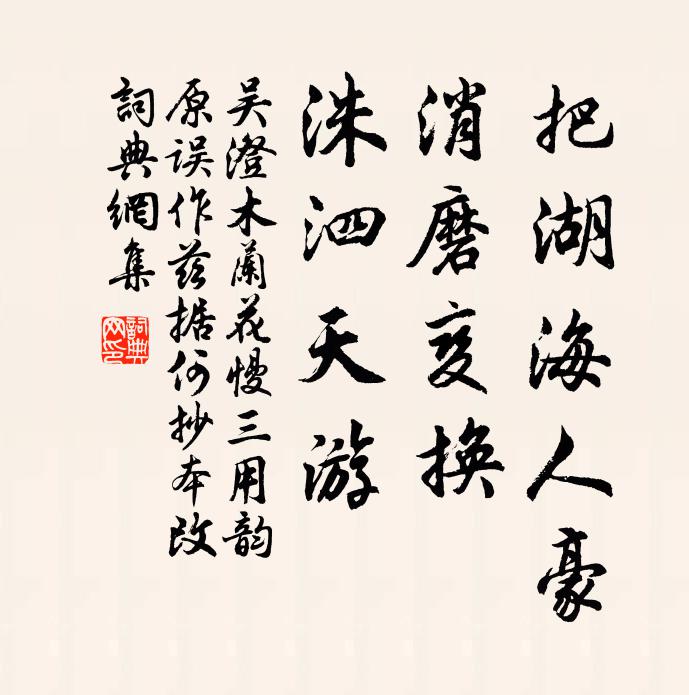 把湖海人豪
消磨变换
洙泗天游
吴澄木兰花慢三用韵
原误作兹据何抄本改
詞典網集
詞典
网印